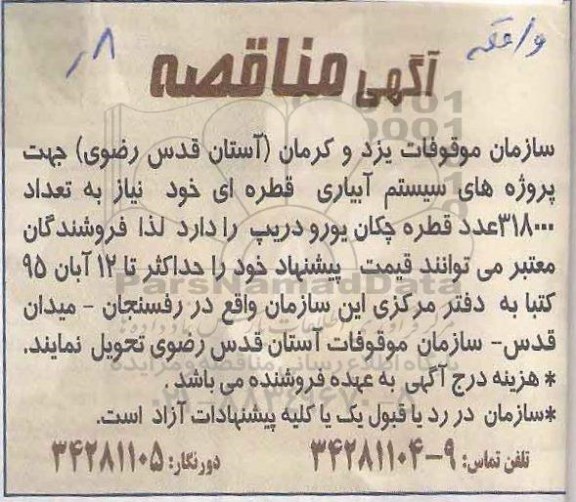 آگهی مناقصه
سازمان موقوفات یزد و کرمان (آستان قدس رضوی) جهت
پروژه های سیستم آبیاری قطره ای خود نیاز به تعداد
۳۱۸۰۰۰عدد قطره چکان یورو دریپ را دارد لذا فروشندگان
معتبر می توانند قیمت پیشنهاد خود را حداکثر تا ۱۲ آبان ۹۵
کتبا به دفتر مرکزی این سازمان واقع در رفسنجان - میدان
قدس- سازمان موقوفات آستان قدس رضوی تحویل نمایند.
* هزینه درج آگهی به عهده فروشنده می باشد .
*سازمان در رد یا قبول یک یا کلیه پیشنهادات آزاد است.
تلفن تماس: ۹-۳۴۲۸۱۱۰۴ دورنگار: ۳۴۲۸۱۱۰۵
ParsNamadData